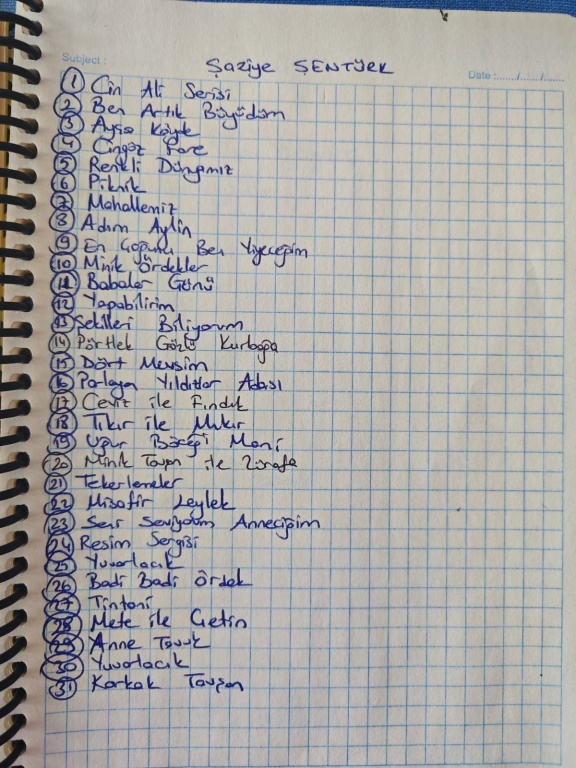 Subject :
Şaziye ŞENTÜRK
Date :....../....../......
1 Cin Ali Serisi
2 Ben Artık Büyüdüm
3 Ayşe Kayık
4 Cingöz Fare
5 Renkli Dünyamız
6 Piknik
7 Mahallemiz
8 Adım Aylin
9 En Çoğunu Ben Yiyeceğim
10 Minik Ördekler
11 Babalar Günü
12 Yapabilirim
13 Şekilleri Biliyorum
14 Pörtlek Gözlü Kurbağa
15 Dört Mevsim
16 Parlayan Yıldızlar Adası
17 Ceviz ile Fındık
18 Tıkır ile Mıkır
19 Uğur Böceği Meni
20 Minik Tavşan ile Zürafa
21 Tekerlemeler
22 Misafir Leylek
23 Seni Seviyorum Anneciğim
24 Resim Sergisi
25 Yuvarlacık
26 Badi Badi Ördek
27 Tintoni
28 Mete ile Çetin
29 Anne Tavuk
30 Yuvarlacık
31 Korkak Tavşan